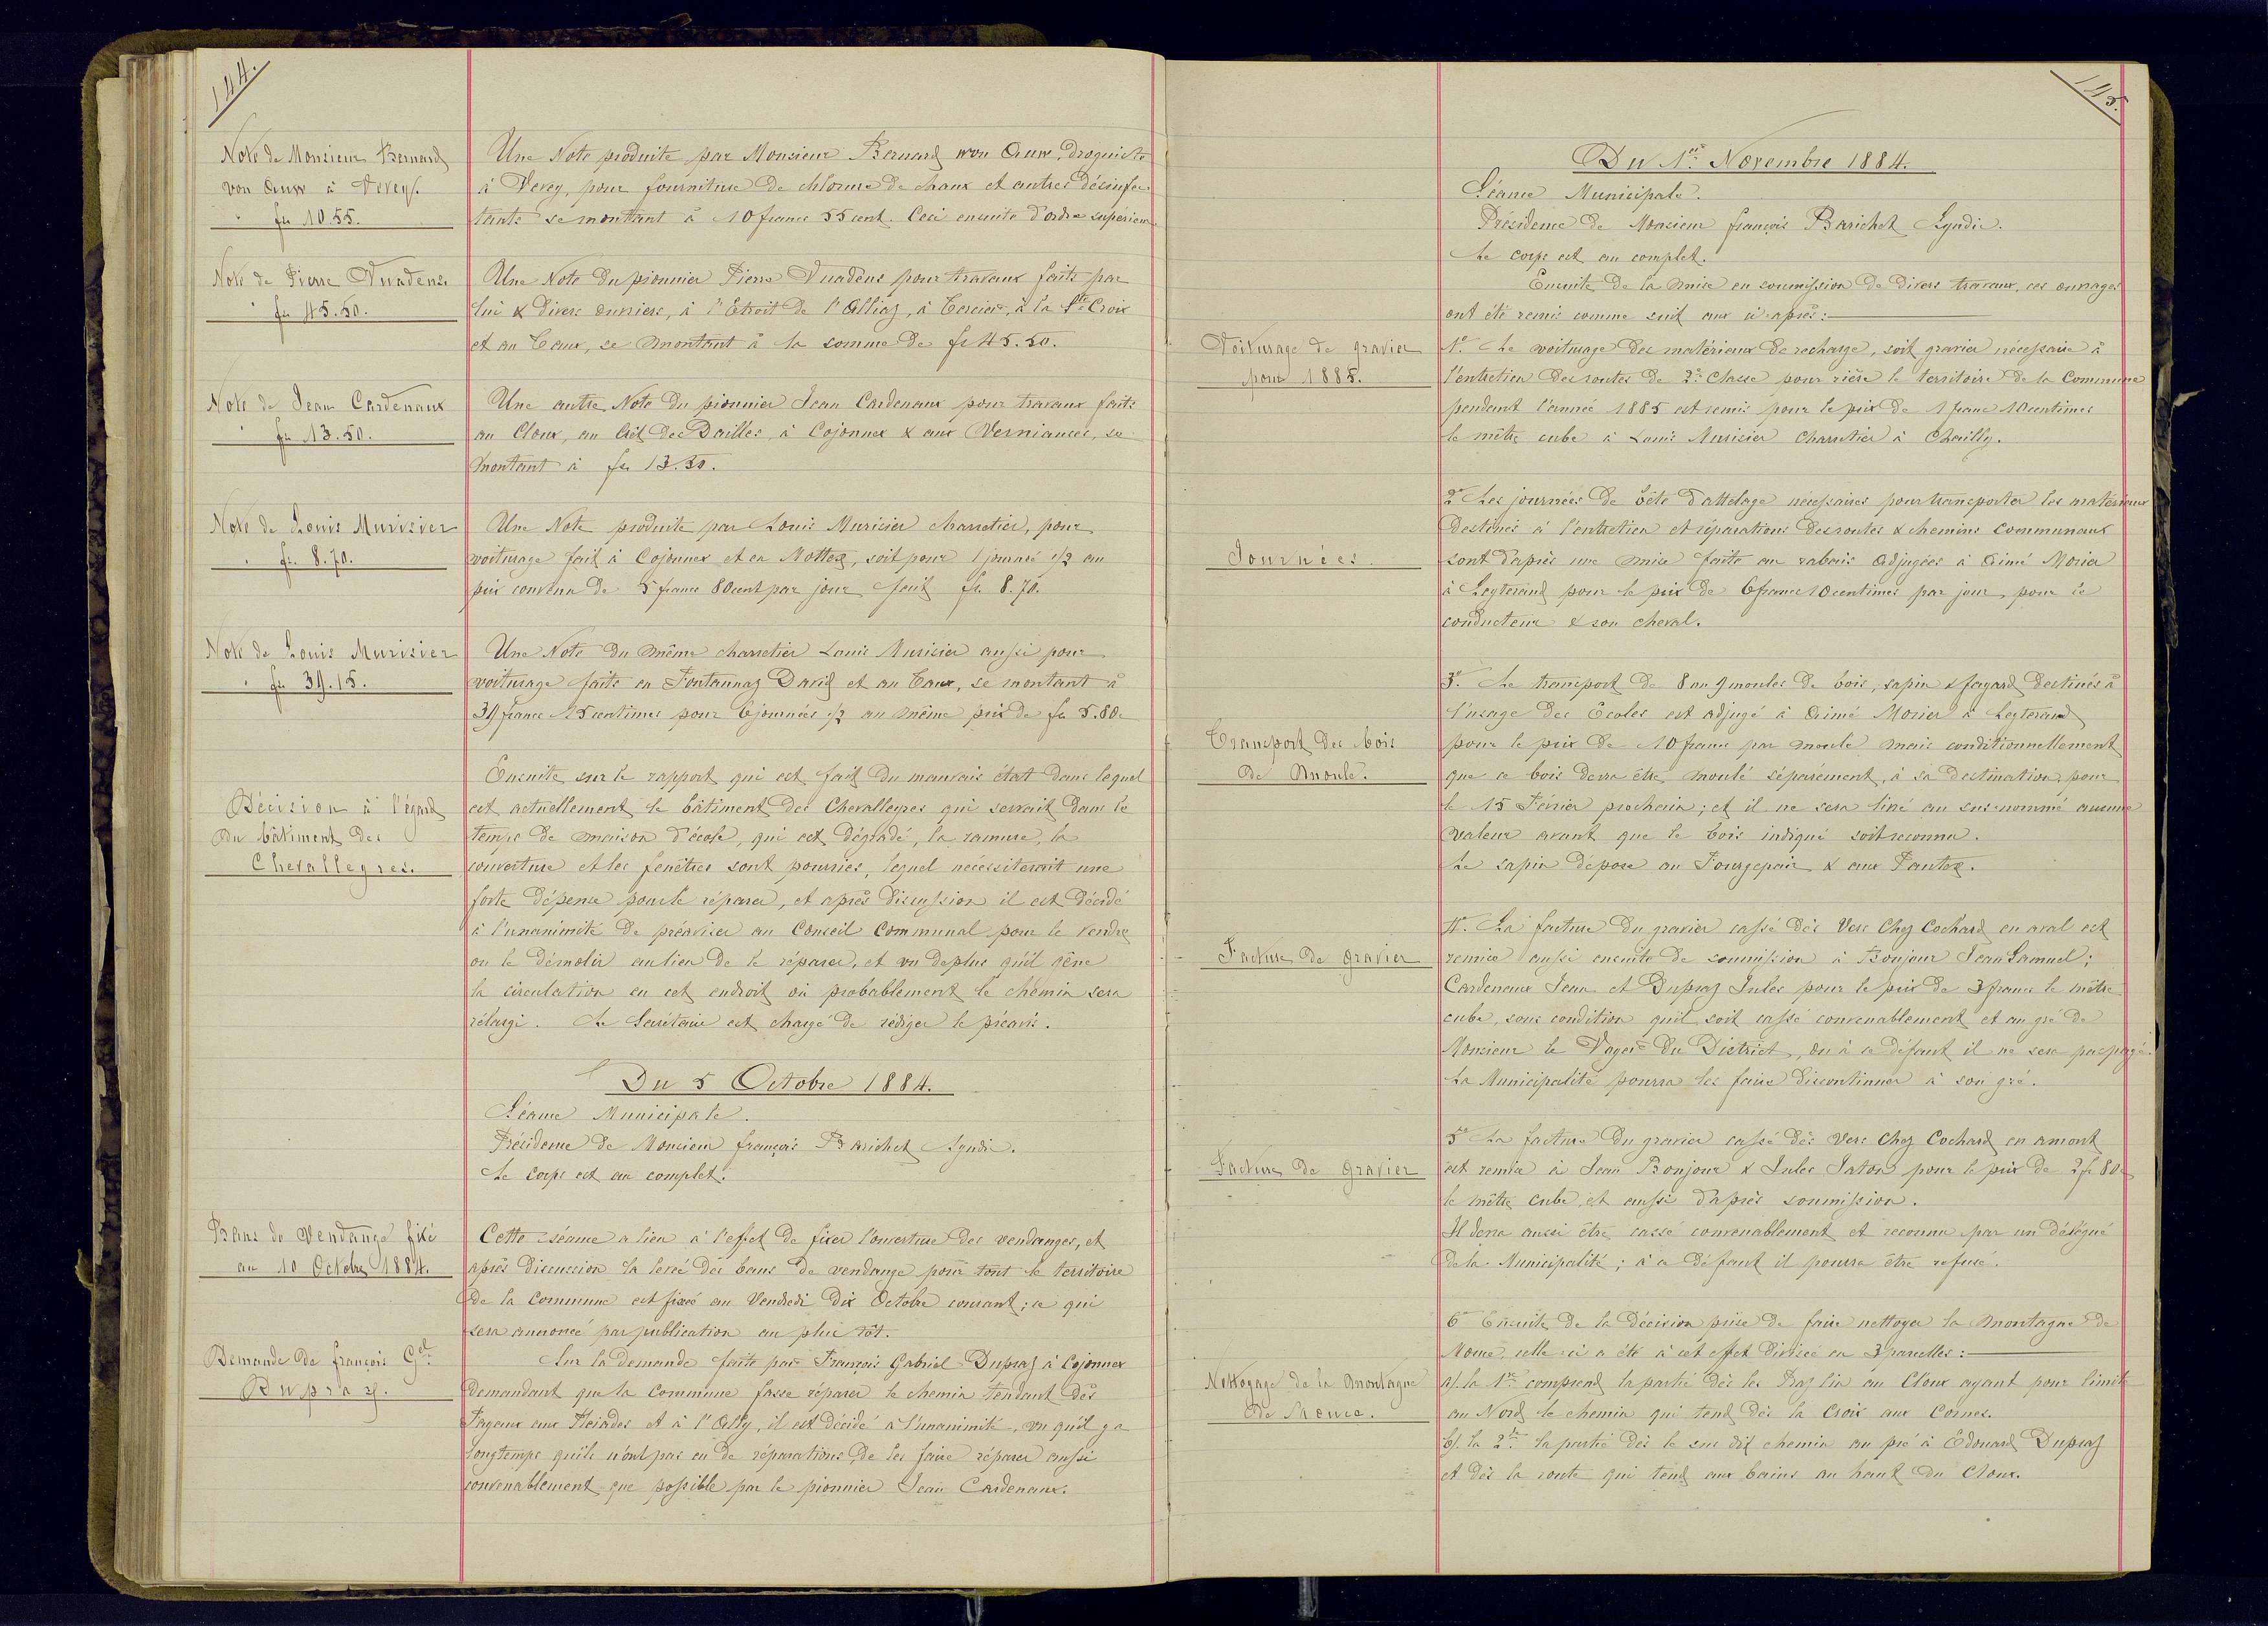 144.
Note de Monsieur Bernard
von Auw à Vevey.
" fr 10.55.
Une Note produite par Monsieur Bernard von Auw, droguiste
à Vevey, pour fourniture de chlorure de chaux et autres désinfec-
tants se montant à 10 francs 55 cent. Ceci ensuite d'ordre supérieur
Note de Pierre Vuadens
" fr 45.50.
Une Note du pionnier Pierre Vuadens pour travaux faits par
lui & divers ouvriers, à l'Etroit de l'Alliaz, à Cercier, à la Ste Croix
et au Caux, se montant à la somme de fr 45.50.
Note de Jean Cardenaux
" fr 13.50.
Une autre Note du pionnier Jean Cardenaux pour travaux faits
au Cloux, au Crêt des Dailles, à Cojonnex & aux Verniauses, se
montant à fr 13.50.
Note de Louis Murisier
" fr. 8.70.
Une Note produite par Louis Murisier charretier, pour
voiturage fait à Cojonnex et en Mottex, soit pour 1 journée 1/2 au
prix convenu de 5 francs 80 cent par jour fait fr. 8.70.
Note de Louis Murisier
" fr 39.15.
Une Note du même charretier Louis Murisier aussi pour
voiturage faits en Fontannaz David et au Caux, se montant à
39 francs 15 centimes pour 6 journées 1/2 au même prix de fr 5.80.
Décision à l'égard
du bâtiment des
Chevalleyres.
Ensuite sur le rapport qui est fait du mauvais état dans lequel
est actuellement le bâtiment des Chevalleyres qui servait dans le
temps de maison d'école, qui est dégradé, la ramure, la
couverture et les fenêtres sont pourries, lequel nécessiterait une
forte dépense pour le réparer, et après discussion il est décidé
à l'unanimité de préaviser au Conseil Communal pour le vendre
ou le démolir au lieu de le réparer, et vu deplus qu'il gêne
la circulation en cet endroit où probablement le chemin sera
rélargi. Le Secrétaire est chargé de rédiger le préavis.
Du 5 Octobre 1884.
Séance Municipale.
Présidence de Monsieur françois Barichet Syndic.
Le corps est au complet.
Bans de Vendange fixé
au 10 Octobre 1884.
Cette séance a lieu à l'effet de fixer l'ouverture des vendanges, et
après discussion la levée des bans de vendange pour tout le territoire
de la Commune est fixée au Vendredi Dix Octobre courant; ce qui
sera annoncé par publication au plus tôt.
Demande de françois Gel
Dupraz.
Sur la demande faite par François Gabriel Dupraz à Cojonnex
demandant que la Commune fasse réparer le chemin tendant dès
Fayaux aux Pleiades et à l'Ally, il est décidé à l'unanimité, vu qu'il y a
longtemps qu'ils n'ont pas eu de réparations, de les faire réparer aussi
convenablement que possible par le pionnier Jean Cardenaux.
145.
Du 1er Novembre 1884.
Séance Municipale.
Présidence de Monsieur françois Barichet Syndic.
Le corps est au complet.
Ensuite de la mise en soumission de divers travaux, ces ouvrages
ont été remis comme suit aux ci-après:
Voiturage de gravier
pour 1885.
1o. Le voiturage des matériaux de recharge, soit gravier nécessaire à
l'entretien des routes de 2e Classe pour rière le territoire de la Commune
pendant l'année 1885 est remis pour le prix de 1 franc 10 centimes
le mètre cube à Louis Murisier charretier à Chailly.
Journées.
2o Les journées de bête d'attelage nécessaires pour transporter les matériaux
destinés à l'entretien et réparations des routes & chemins communaux
sont d'après une mise faite au rabais adjugées à Aimé Morier
à Leyterand pour le prix de 6 francs 10 centimes par jour, pour le
conducteur & son cheval.
Transport des bois
de moule.
3o. Le transport de 8 ou 9 moules de bois, sapin & fayard destinés à
l'usage des Ecoles est adjugé à Aimé Morier à Leyterand
pour le prix de 10 francs par moule mais conditionnellement
que ce bois devra être moulé séparément, à sa destination, pour
le 15 Février prochain; et il ne sera livré au sus-nommé aucune
valeur avant que le bois indiqué soit reconnu.
Le sapin dépose au Fourgepair & aux Pautex.
Facture de gravier
4o. La facture du gravier cassé dès Vers Chez Cochard en aval est
remise aussi ensuite de soumission à Bonjour Jean Samuel;
Cardenaux Jean et Dupraz Jules pour le prix de 3 francs le mètre
cube, sous condition qu'il soit cassé convenablement et au gré de
Monsieur le Voyer du District, ou à ce défaut il ne sera pas payé.
La Municipalité pourra les faire discontinuer à son gré.
Facture de gravier
5o La facture du gravier cassé dès Vers Chez Cochard en amont
est remise à Jean Bonjour & Jules Jaton pour le prix de 2 fr 80
le mètre cube, et aussi d'après soumission.
Il devra aussi être cassé convenablement et reconnu par un délégué
de la Municipalité; à ce défaut il pourra être refusé.
Nettoyage de la montagne
de Mouce.
6o Ensuite de la décision prise de faire nettoyer la montagne de
Mouce, celle-ci a été à cet effet divisée en 3 parcelles:
a/. la 1re comprend la partie dès les Praz lia au Cloux ayant pour limite
au Nord le chemin qui tend dès la Croix aux Cornes.
b/. la 2e la partie dès le sus dit chemin au pré à Edouard Dupraz
et dès la route qui tend aux bains au haut du Cloux.